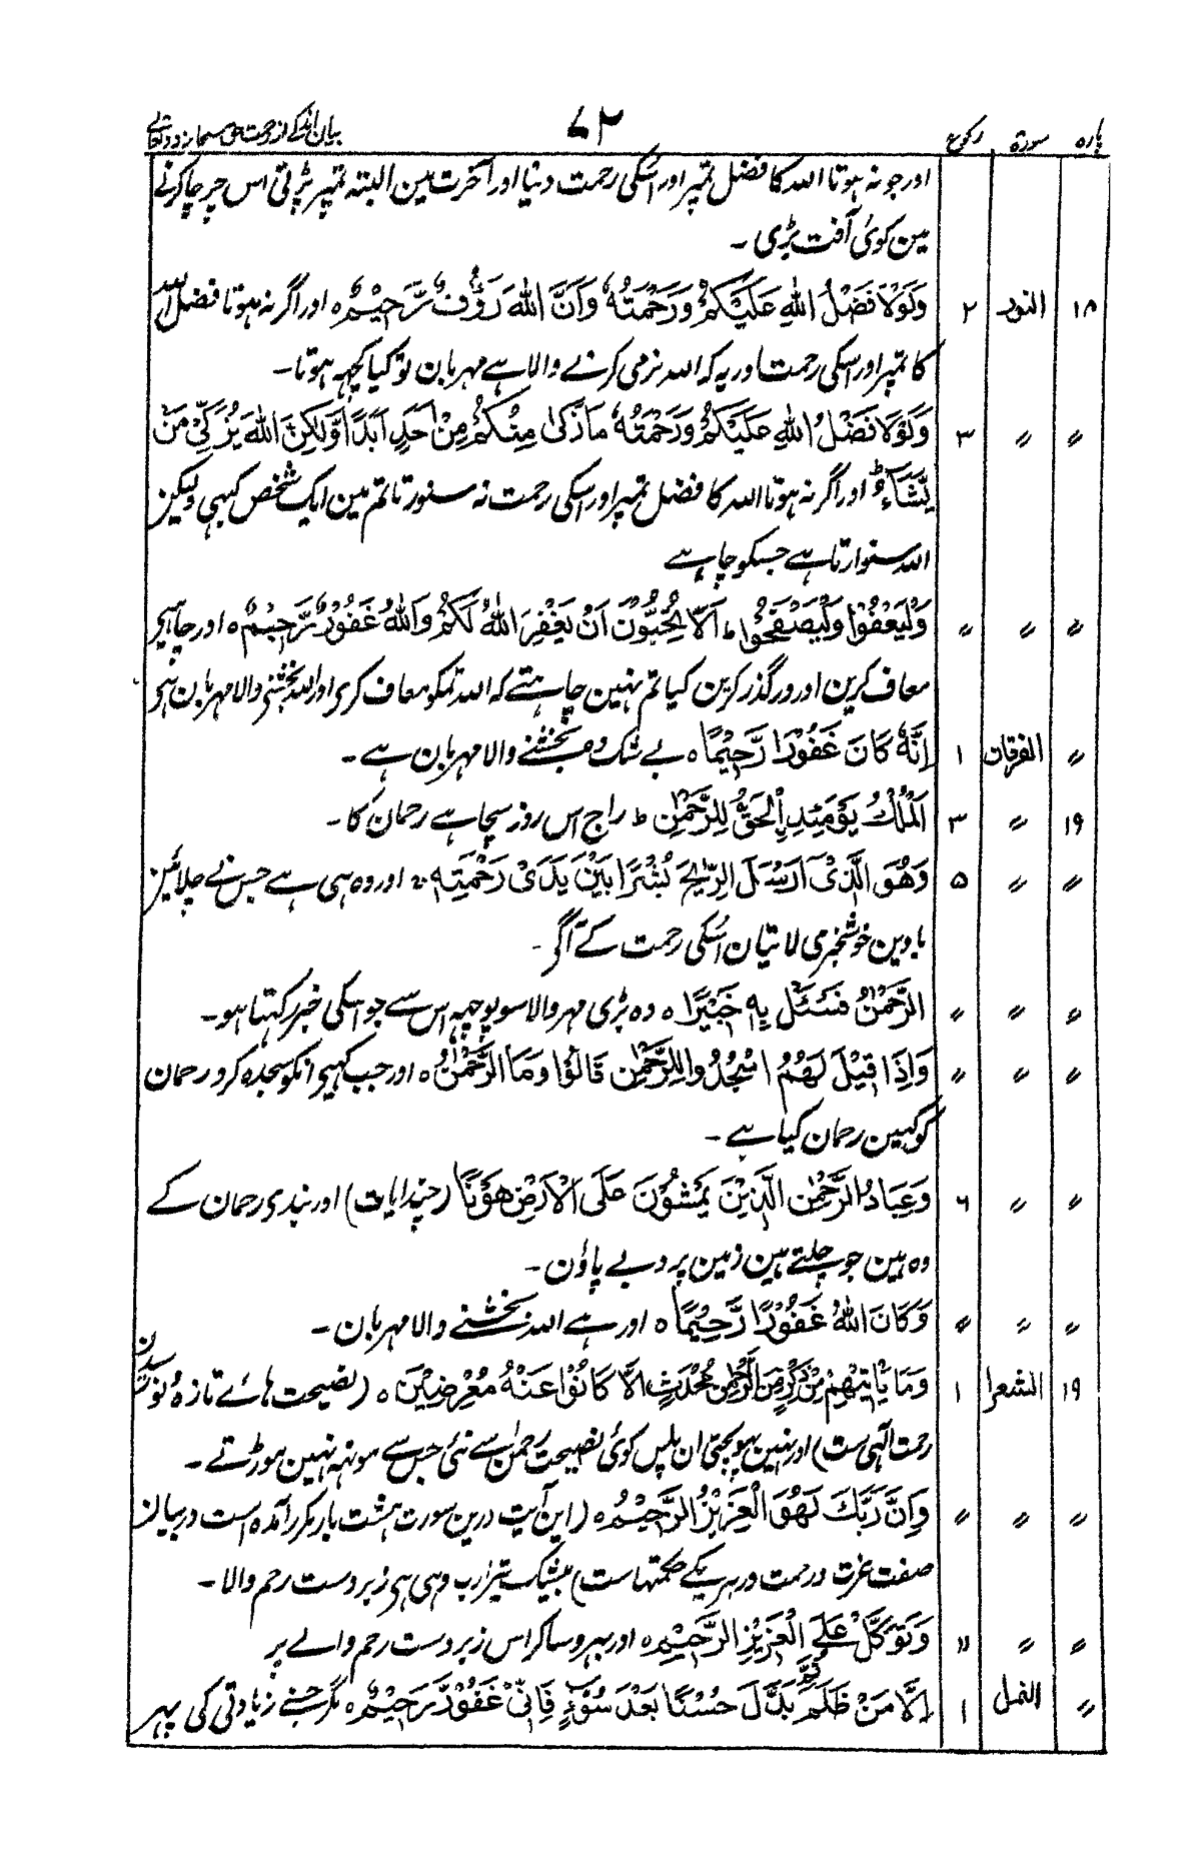 پارہ سورۃ رکوع ۷۲ بیان اندکے از رحمت حق سبحانہ و تعالےٰ
اور جو نہ ہوتا اللہ کا فضل تمپر اور اُسکی رحمت دنیا اور آخرت مین البتہ تمپر پڑتی اس چرچا کرنے
مین کوئی آفت بڑی ۔
۱۸ النور ۲ وَلَوْلَا فَضْلُ اللّٰهِ عَلَيْكُمْ وَرَحْمَتُهٗ وَاَنَّ اللّٰهَ رَؤُفٌ رَّحِيْمٌ ه اور اگر نہ ہوتا فضل اللہ
کا تمپر اور اسکی رحمت اور یہ کہ اللہ نرمی کرنے والا ہے مہربان تو کیا کچھ ہوتا ۔
〃 〃 ۳ وَلَوْلَا فَضْلُ اللّٰهِ عَلَيْكُمْ وَرَحْمَتُهٗ مَا زَكٰى مِنْكُمْ مِنْ اَحَدٍ اَبَدًا وَّلٰكِنَّ اللّٰهَ يُزَكِّيْ مَنْ
يَّشَآءُ ط اور اگر نہ ہوتا اللہ کا فضل تمپر اور اسکی رحمت نہ سنورتا تم مین ایک شخص کبہی ولیکن
اللہ سنوارتا ہے جسکو چاہے
〃 〃 〃 وَلْيَعْفُوْا وَلْيَصْفَحُوْا ط اَلَا تُحِبُّوْنَ اَنْ يَغْفِرَ اللّٰهُ لَكُمْ وَاللّٰهُ غَفُوْرٌ رَّحِيْمٌ ه اور چاہیے
معاف کرین اور درگذر کرین کیا تم نہین چاہتے کہ اللہ تمکو معاف کری اور اللہ بخشنے والا مہربان ہے
〃 الفرقان ۱ اِنَّهٗ كَانَ غَفُوْرًا رَّحِيْمًا ه بے شک وہ بخشنے والا مہربان ہے ۔
۱۹ 〃 ۳ اَلْمُلْكُ يَوْمَئِذِ اِلْحَقُّ لِلرَّحْمٰنِ ط راج اس روز سچا ہے رحمان کا ۔
〃 〃 ۵ وَهُوَ الَّذِيْ اَرْسَلَ الرِّيٰحَ بُشْرًا بَيْنَ يَدَيْ رَحْمَتِهٖ ۚ اور وہ ہی ہے جس نے چلائین
بادین خوشخبری لاتیان اُسکی رحمت کے آگے ۔
〃 〃 〃 الرَّحْمٰنُ فَسْئَلْ بِهٖ خَبِيْرًا ه وہ بڑی مہر والا سو پوچھ اس سے جو اسکی خبر رکہتا ہو ۔
〃 〃 〃 وَاِذَا قِيْلَ لَهُمُ اسْجُدُوا لِلرَّحْمٰنِ قَالُوْا وَمَا الرَّحْمٰنُ ه اور جب کہیے انکو سجدہ کرو رحمان
کو کہین رحمان کیا ہے ۔
〃 〃 ۶ وَعِبَادُ الرَّحْمٰنِ الَّذِيْنَ يَمْشُوْنَ عَلَى الْاَرْضِ هَوْنًا (چند ایات) اور بندی رحمان کے
وہ ہین جو چلتے ہین زمین پر دبے پاؤن ۔
〃 〃 〃 وَكَانَ اللّٰهُ غَفُوْرًا رَّحِيْمًا ه اور ہے اللہ بخشنے والا مہربان ۔
۱۹ الشعرا ۱ وَمَا يَاْتِيْهِمْ مِنْ ذِكْرٍ مِّنَ الرَّحْمٰنِ مُحْدَثٍ اِلَّا كَانُوْا عَنْهُ مُعْرِضِيْنَ ه (نصیحت ہائے تازہ
رحمت آلہی ست) اور نہین پہونچتی ان پاس کوئی نصیحت رحمٰن سے نئی جس سے مونہہ نہین موڑتے ۔
〃 〃 〃 وَاِنَّ رَبَّكَ لَهُوَ الْعَزِيْزُ الرَّحِيْمُ ه (این آیت درین سورت ہشت بار مکرر آمدہ است در بیان
صفت عزت و رحمت و در ہر یکے حکمتہاست) بیشک تیرا رب وہی ہی زبردست رحم والا ۔
〃 〃 ۱۱ وَتَوَكَّلْ عَلَى الْعَزِيْزِ الرَّحِيْمِ ه اور بہروسا کر اس زبردست رحم والے پر
〃 النمل ۱ اِلَّا مَنْ ظَلَمَ ثُمَّ بَدَّلَ حُسْنًا بَعْدَ سُوْٓءٍ فَاِنِّيْ غَفُوْرٌ رَّحِيْمٌ ه مگر جسنے زیادتی کی پہر